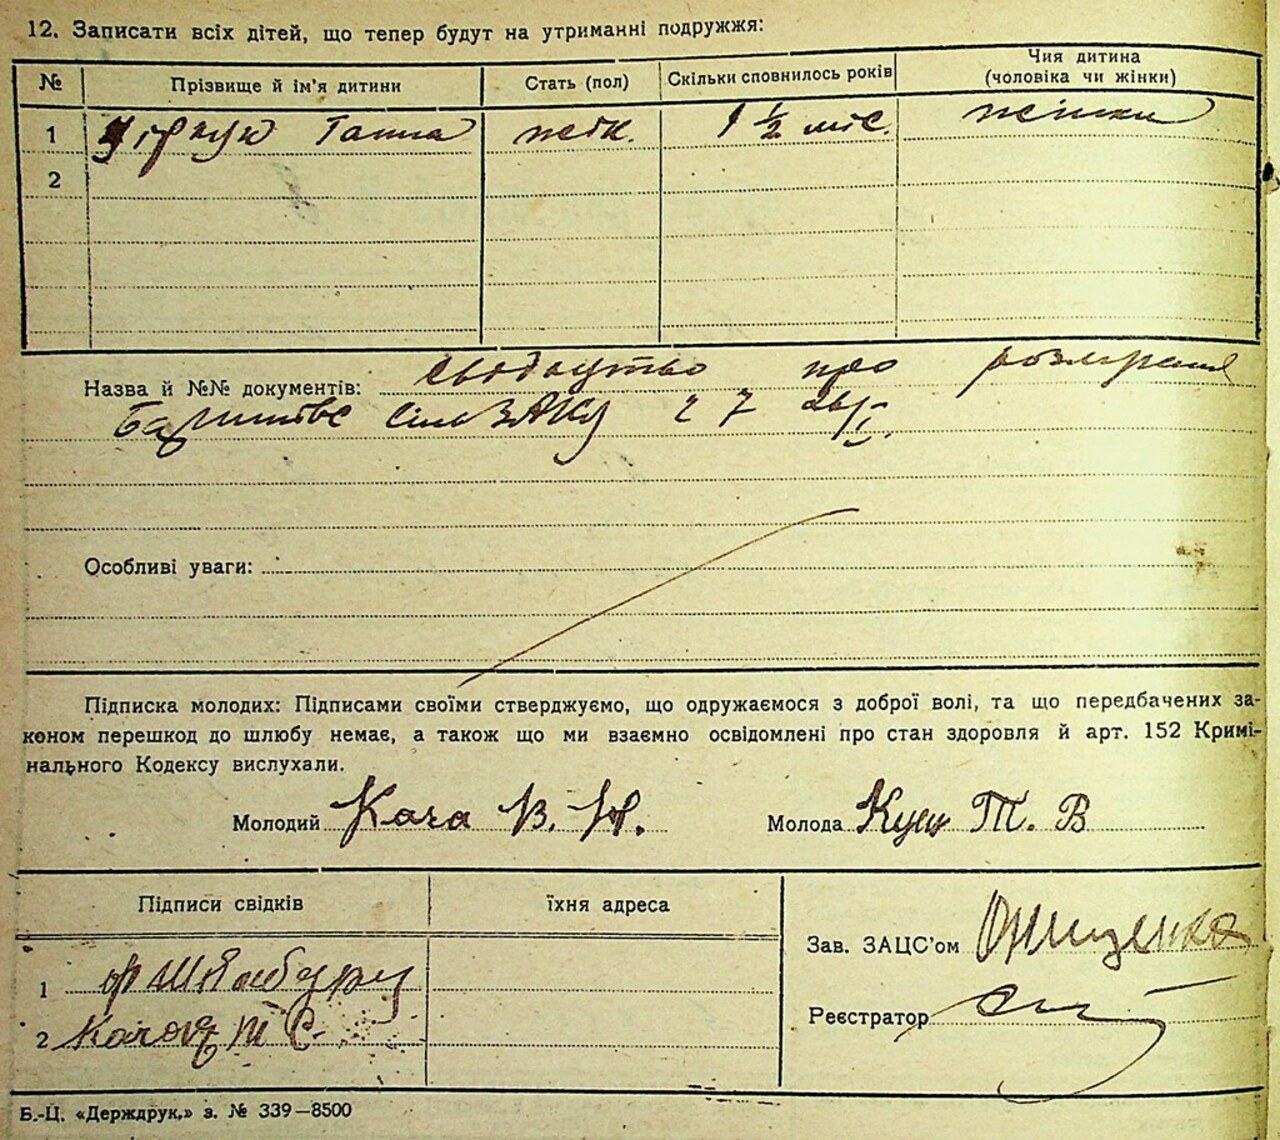 12. Записати всіх дітей, що тепер будут на утриманні подружжя:
№ Прізвище й ім'я дитини Стать (пол) Скільки сповнилось років Чия дитина (чоловіка чи жінки)
1 Ганна жінк. 1 ½ міс. жінки
2
Назва й №№ документів: свідоцтво про
сільЗАКу 27
Особливі уваги:
Підписка молодих: Підписами своїми стверджуємо, що одружаємося з доброї волі, та що передбачених за-
коном перешкод до шлюбу немає, а також що ми взаємно освідомлені про стан здоровля й арт. 152 Кримі-
нального Кодексу вислухали.
Молодий В. Молода Куец Т. В
Підписи свідків їхня адреса
Зав. ЗАЦС'ом Онищенко
1
Реєстратор
2
Б.-Ц. «Держдрук,» з. № 339—8500